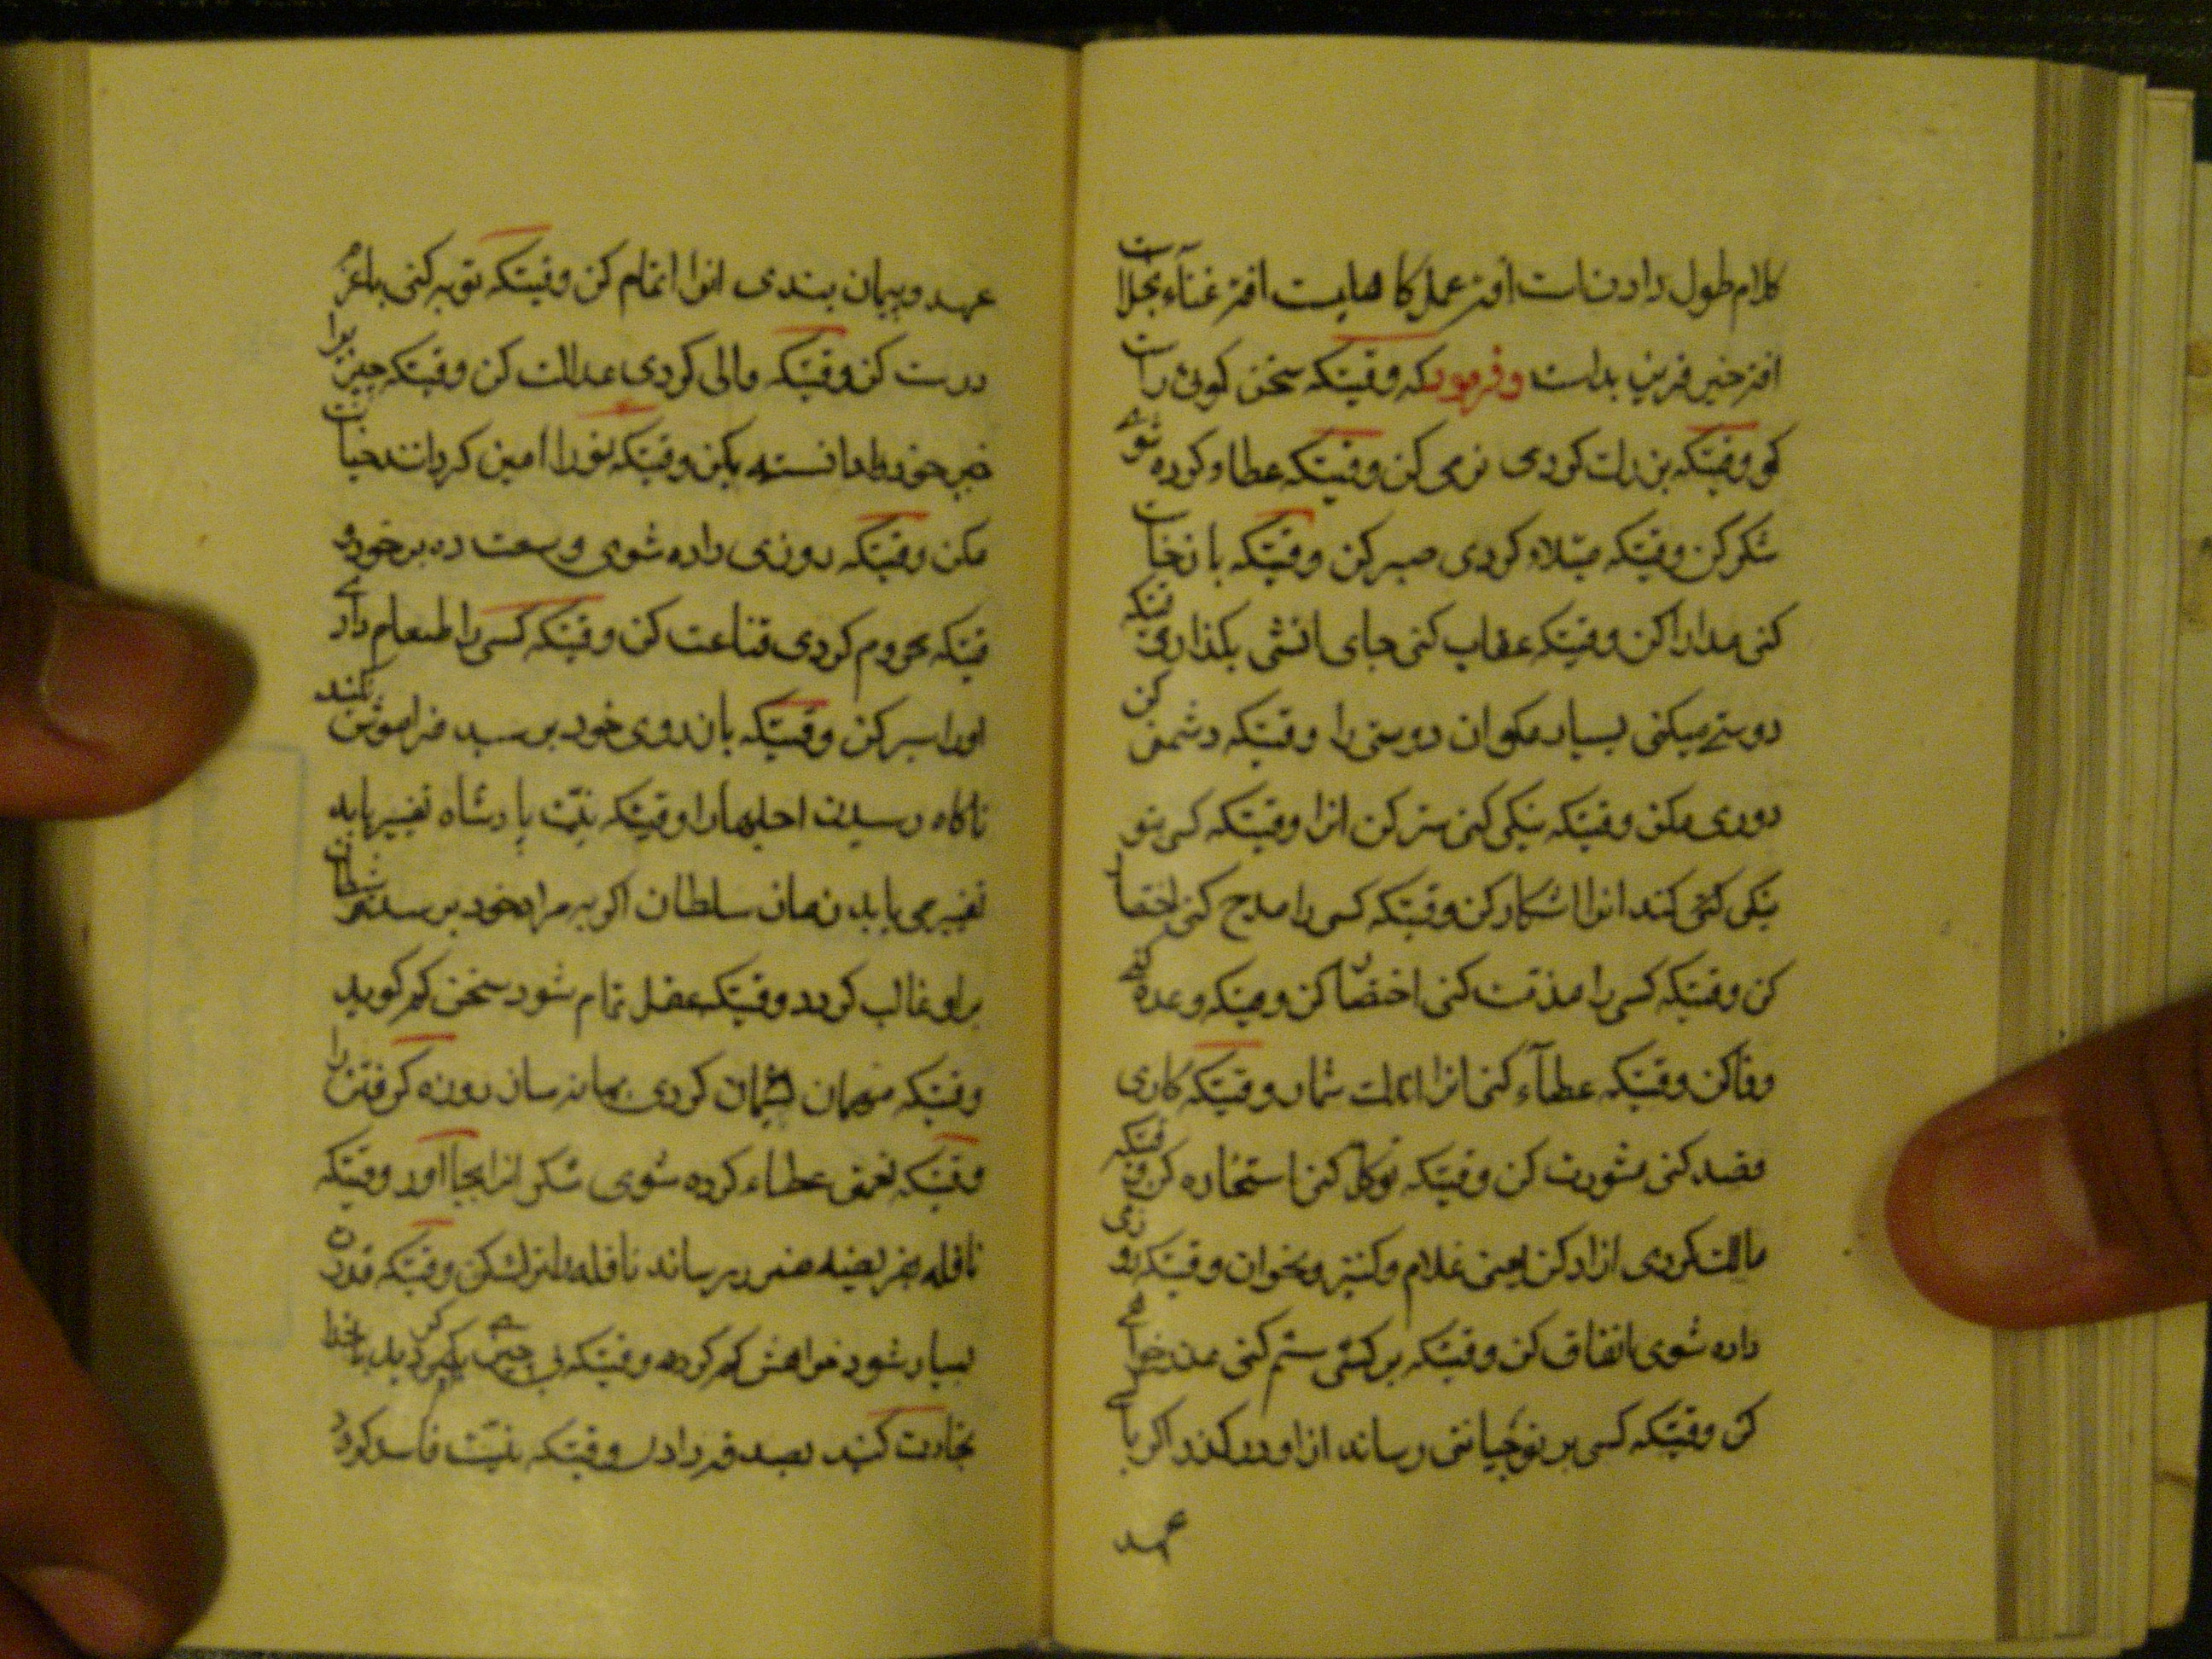 کلام طول دادنات افتر عمل کاهلیت افتر غناء بخل است
افتر خیر فرین بدات وفرمود که وقتیکه سخن کوئی راست
کو وقتیکه بزرت کردی نرمی کن وقتیکه عطاء کرده شوی
شکر کن وقتیکه مبتلاء کردی صبر کن وقتیکه با
کنی مدارا کن وقتیکه عقاب کنی جای اشتی بکذار
دوستی میکنی بسیار مکوان دوستی را وقتیکه دشمنی کن
دوری مکن وقتیکه نیکی کنی ستر کن انرا وقتیکه کسی بتو
نیکی کند انرا اشکار کن وقتیکه کسی را مدح کنی اختصار
کن وقتیکه کسی را مذمت کنی اختصار کن وقتیکه وعده کنی
وفا کن وقتیکه عطاء کنی انرا شمار وقتیکه کاری
قصد کنی مشورت کن وقتیکه توکل کنی استخاره کن وقتیکه
مالک کردی ازاد کن یعنی غلام وکنیز وبخوان وقتیکه روزی
داده شوی انفاق کن وقتیکه بر کسی ستم کنی
کن وقتیکه کسی بر تو خیانتی رساند از او در کذر اکر با کسی
عهد
عهد وپیمان بندی انرا اتمام کن وقتیکه توبه کنی با عزم
درست کن وقتیکه والی کردی عدالت کن وقتیکه چیزیرا
مکن وقتیکه ترا امین کردانند خیانت
مکن وقتیکه روزی داده شوی وسعت ده بر خود و
قتیکه محروم کردی قناعت کن وقتیکه کسی را طعام دادی
اورا سیر کن وقتیکه بارزوی خود برسید فراموش نکند
ناکاه رسیدن اجلها را وقتیکه نیت پادشاه تغییر یابد
تغییر می یابد زمان سلطان اکر به مراد خود برسد شیطان
براو غالب کردد وقتیکه عقل تمام شود سخن کم کوید
وقتیکه مهمان کردی روزه کرفتن را
وقتیکه نعمتی عطاء کرده شوی شکر انرا بجا آور وقتیکه
نافله بفریضه ضرر برساند نافله را ترک کن وقتیکه قدرت
بسیار شود خواهش کم کردد وقتیکه بی چیز با خدا
تجارت کنید بصدقه دادن وقتیکه نیت فاسد کردد